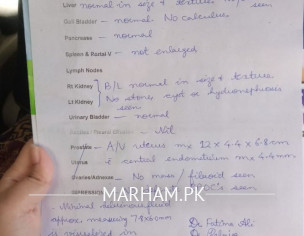 Liver normal in size & texture. No seen
Gall Bladder - normal. No calculus
Pancreas - normal
Spleen & Portal V - not enlarged
Lymph Nodes
Rt Kidney B/L normal in size & texture
Lt Kidney No stone, cyst or hydronephrosis seen
Urinary Bladder - normal
Nil
Prostate - A/V uterus m 12 x 4.4 x 6.8 cm
Uterus & central endometrium m 4.4 mm
Ovaries/Adnexae - No mass / fibroid seen
MARHAM.PK
IMPRESSION POC's seen
Minimal
approx measuring
Dr Fatima Ali
is visualized in